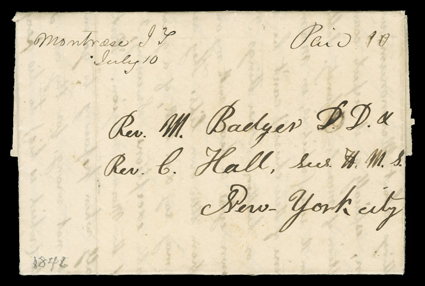 Montrose I T
July 10
Paid 10
Rev. M. Badger D.D. &
Rev. C. Hall, Sec H. M. S.
New-York city
1842